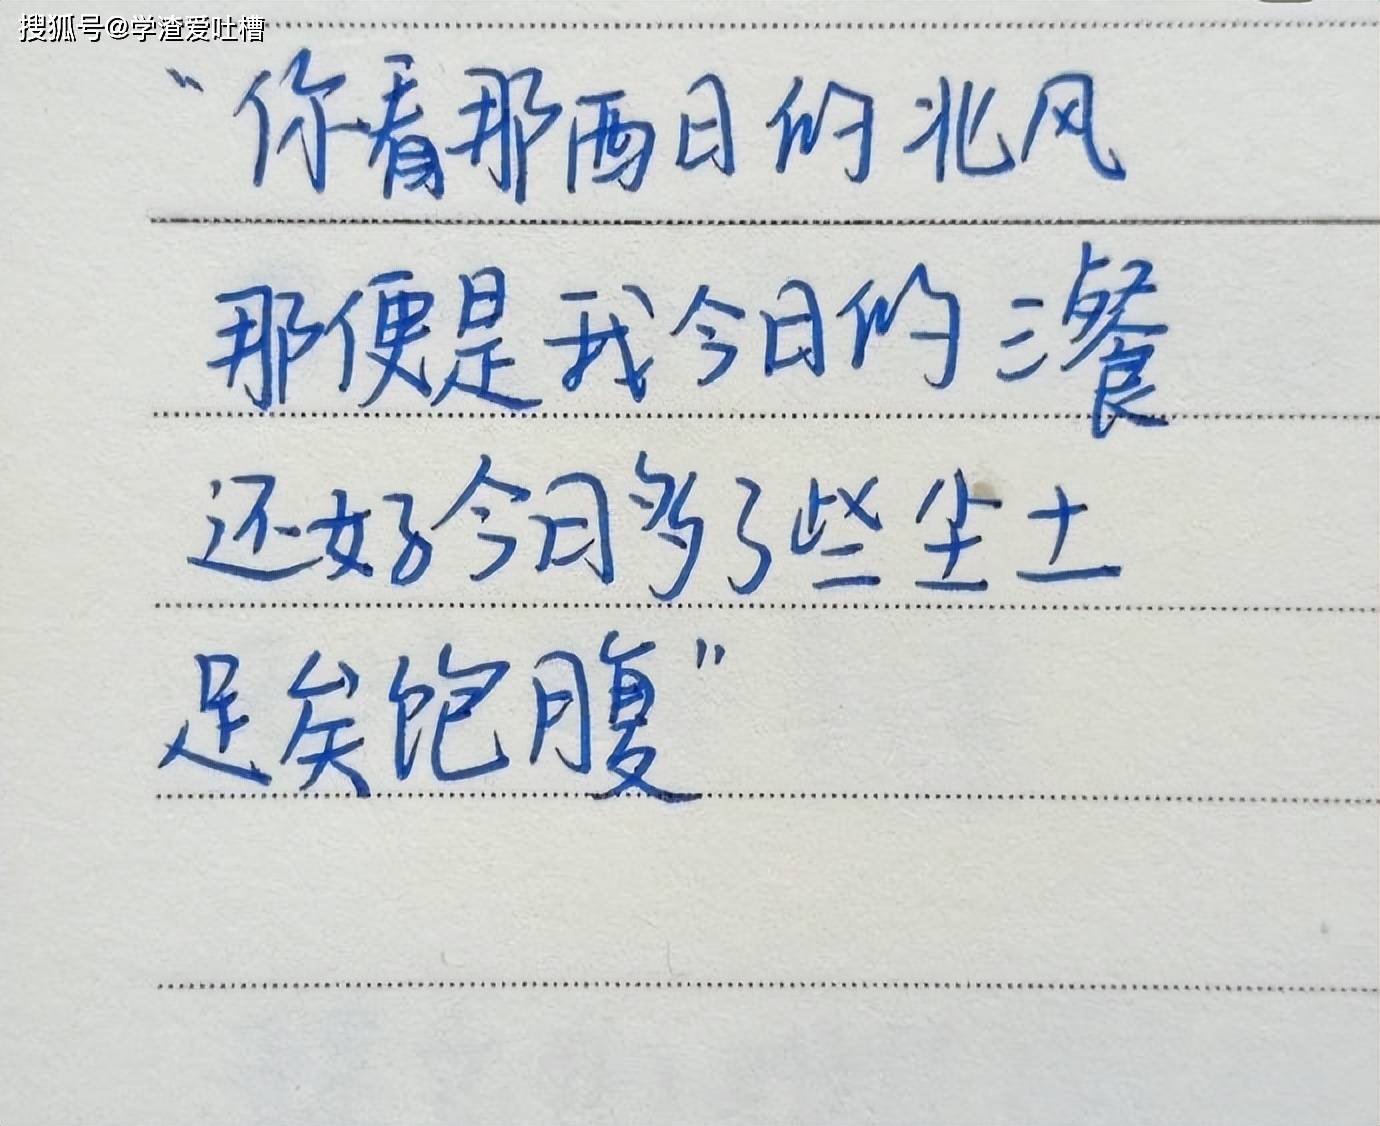 搜狐号@学渣爱吐槽
“你看那西日的北风
那便是我今日的三餐
还好今日多了些尘土
足矣饱腹”